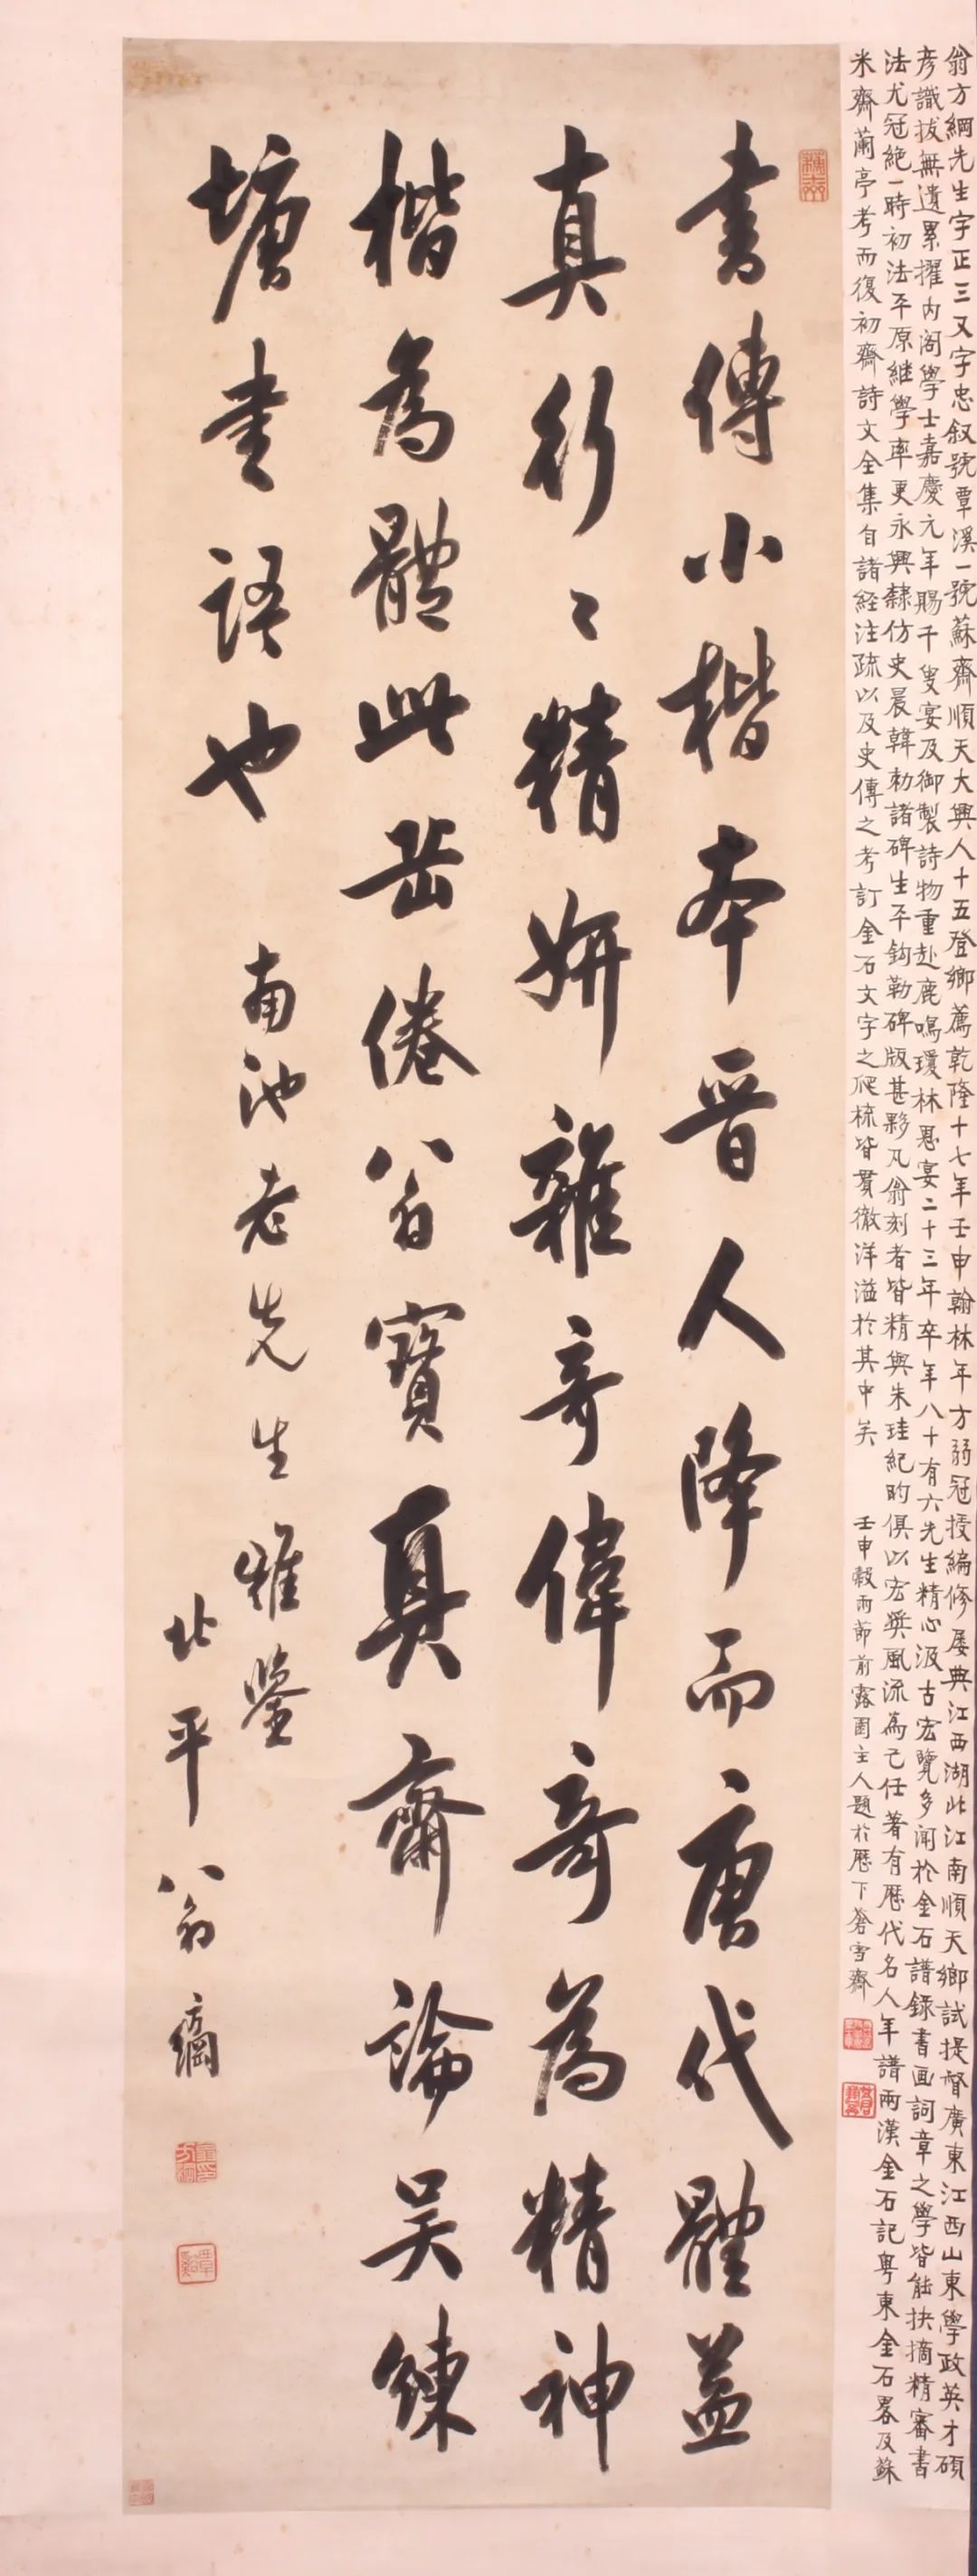 翁方綱先生字正三又字忠叙號覃溪一號蘇齋順天大興人十五登鄉薦乾隆十七年壬申翰林年方弱冠授編修屡典江西湖北江南順天鄉試提督廣東江西山東學政英才碩
彦識拔無遺累擢内阁學士嘉慶元年賜千叟宴及御製詩物重赴鹿鳴瓊林恩宴二十三年卒年八十有六先生精心汲古宏覽多闻於金石譜録書画詞章之學皆能抉摘精審書
法尤冠絶一時初法平原継學率更永興隸仿史晨韓勑諸碑生平鈎勒碑版甚夥凡翁刻者皆精與朱珪紀昀俱以宏奬風流為己任著有歷代名人年譜兩漢金石記粤東金石畧及蘇
米齋蘭亭考而復初齋詩文全集自諸經注疏以及史傳之考訂金石文字之爬梳皆貫徹洋溢於其中矣 壬申穀雨節前露園主人題於歷下蒼雪齋
蘇齋
書傳小楷本晋人降而唐代體益
真行〻精妍雜奇偉奇為精神
楷為體此岳倦翁寶真齋論吴練
塘書語也 南池老先生雅鑒
北平翁方綱